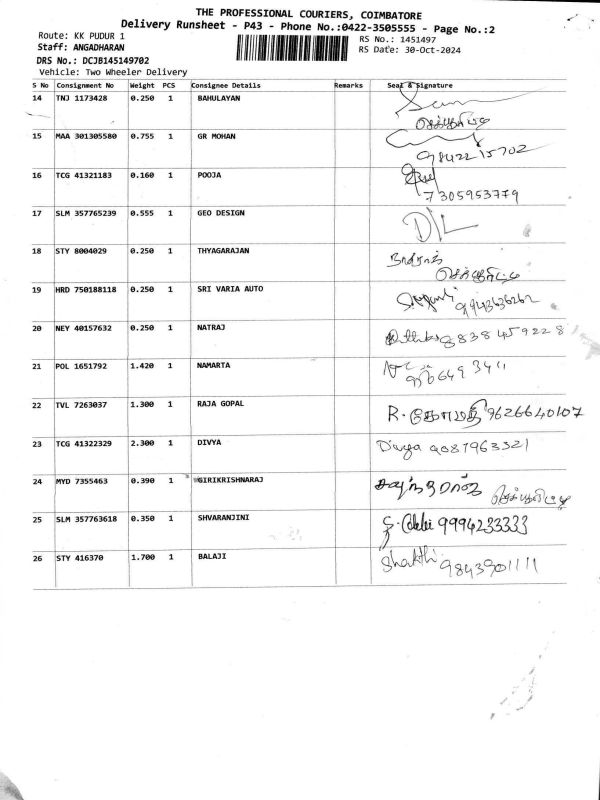 THE PROFESSIONAL COURIERS, COIMBATORE
Delivery Runsheet - P43 - Phone No.:0422-3505555 - Page No.:2
Route: KK PUDUR 1
RS No.: 1451497
Staff: ANGADHARAN
RS Date: 30-Oct-2024
DRS No.: DCJB145149702
Vehicle: Two Wheeler Delivery
S No Consignment No Weight PCS Consignee Details Remarks Seal & Signature
14 TNJ 1173428 0.250 1 BAHULAYAN
15 MAA 301305580 0.755 1 GR MOHAN
9842215702
16 TCG 41321183 0.160 1 POOJA
7305953779
17 SLM 357765239 0.555 1 GEO DESIGN
18 STY 8004029 0.250 1 THYAGARAJAN
19 HRD 750188118 0.250 1 SRI VARIA AUTO
20 NEY 40157632 0.250 1 NATRAJ
9838459228
21 POL 1651792 1.420 1 NAMARTA
22 TVL 7263037 1.300 1 RAJA GOPAL R. கோமதி 9626640107
23 TCG 41322329 2.300 1 DIVYA Divya 9087963321
24 MYD 7355463 0.390 1 GIRIKRISHNARAJ
25 SLM 357763618 0.350 1 SHVARANJINI 9994233333
26 STY 416370 1.700 1 BALAJI Shakthi 9843301111